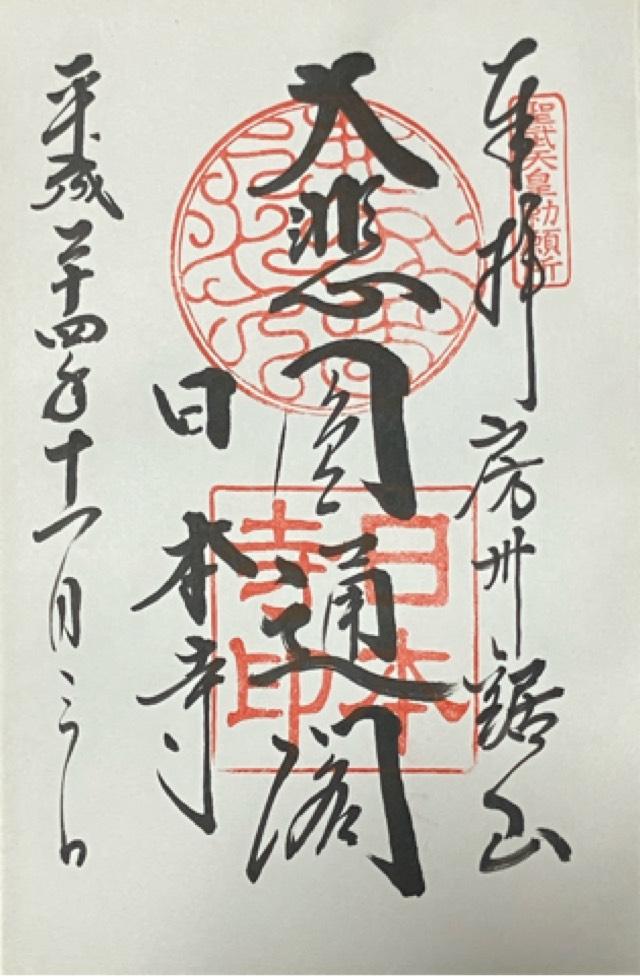 聖武天皇勅願所
奉拝 房州鋸山
大悲圓通閣
日本寺印
日本寺
平成二十四年十一月三日